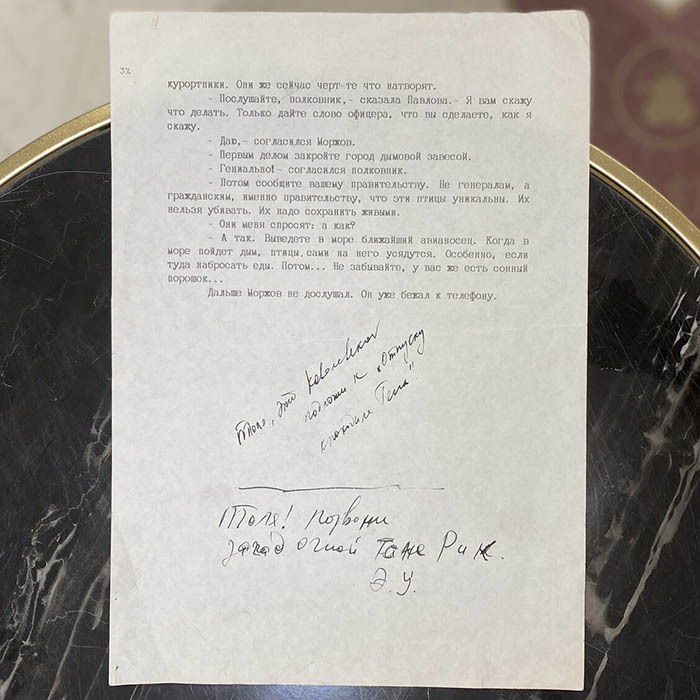 курортники. Они же сейчас черт-те что натворят.
- Послушайте, полковник,- сказала Павлова.- Я вам скажу
что делать. Только дайте слово офицера, что вы сделаете, как я
скажу.
- Даю,- согласился Моржов.
- Первым делом закройте город дымовой завесой.
- Гениально!- согласился полковник.
- Потом сообщите вашему правительству. Не генералам, а
гражданским, именно правительству, что эти птицы уникальны. Их
нельзя убивать. Их надо сохранить живыми.
- Они меня спросят: а как?
- А так. Выведете в море ближайший авианосец. Когда в
море пойдет дым, птицы сами на него усядутся. Особенно, если
туда набросать еды. Потом... Не забывайте, у вас же есть сонный
порошок...
Дальше Моржов не дослушал. Он уже бежал к телефону.
Толя, это
подложи к "Отпуску
крокодила Гены"
Толя! Позвони
загадочной Тане Рик.
Э.У.